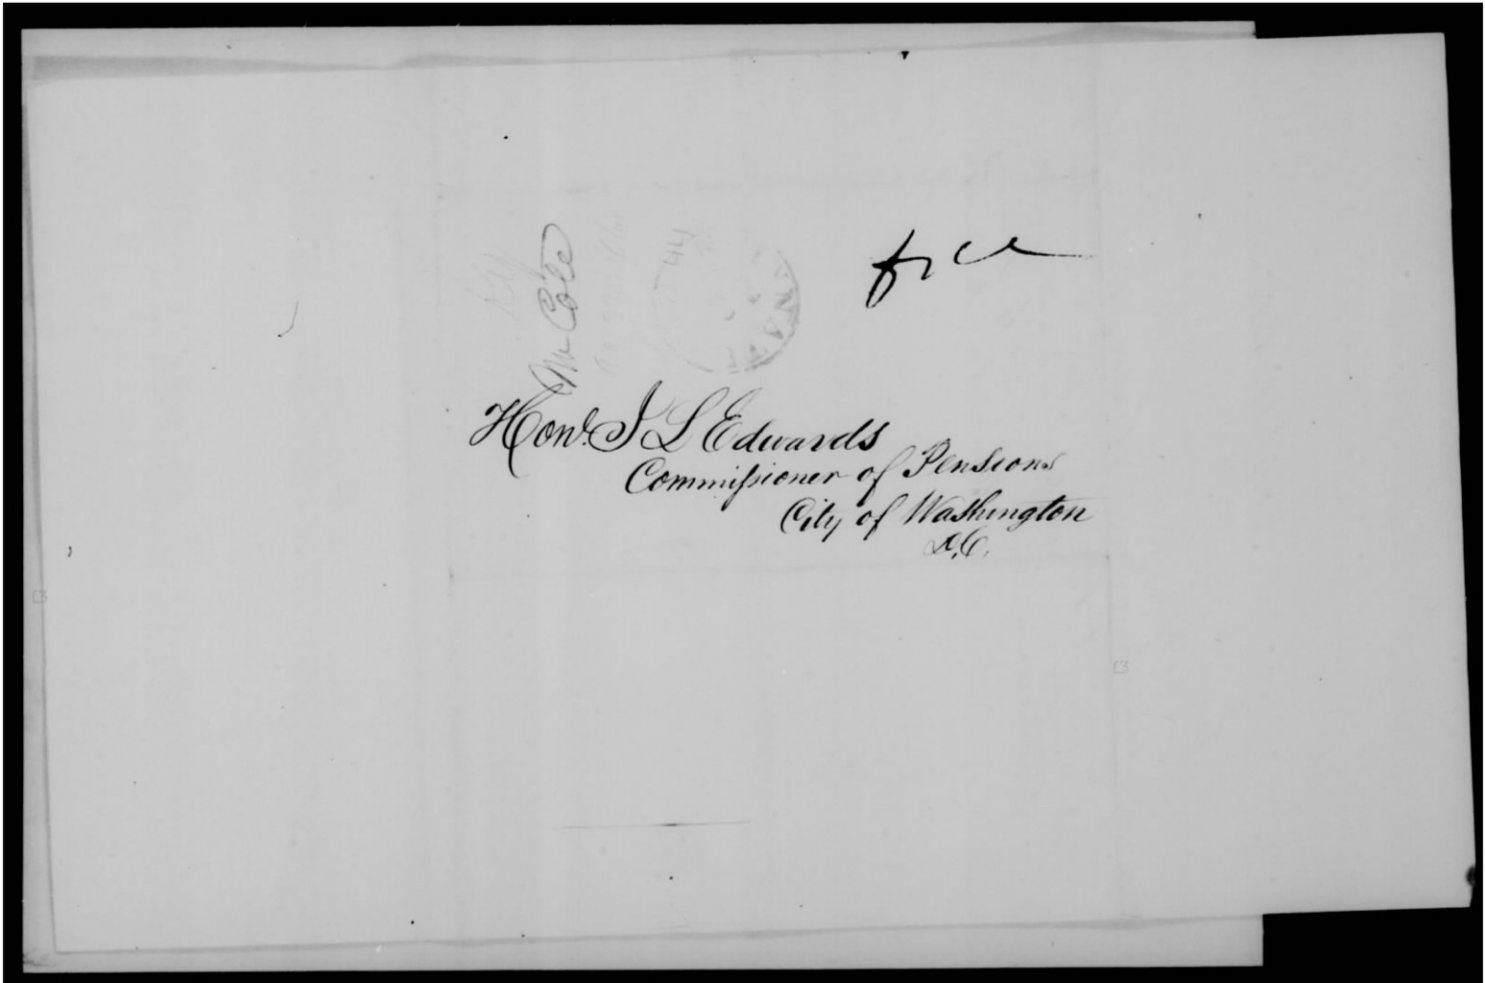 free
Mr Cole
Ky
Honl. J L Edwards
Commissioner of Pensions
City of Washington
D.C.